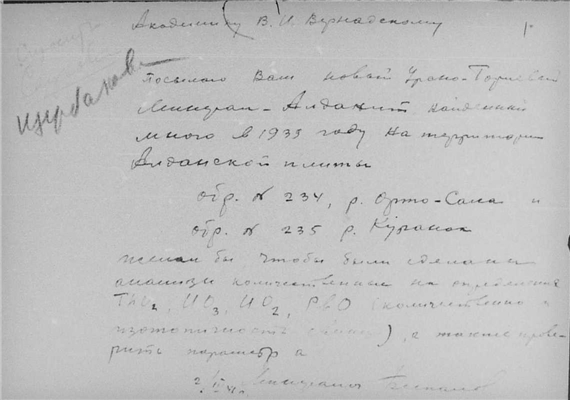 Академику В. И. Вернадскому
посылаю Вам новый Урано-Ториевый
минерал - Алданит найденный
мною в 1933 году на территории
Алданской плиты
обр. N 234, р. Орто-Сала и
обр. N 235 р. Куранах
желал бы чтобы были сделаны
анализы количественный на определение
ThO₂, UO₃, UO₂, PbO (количественно и
изотопичность свинца), а также прове-
рить параметр a